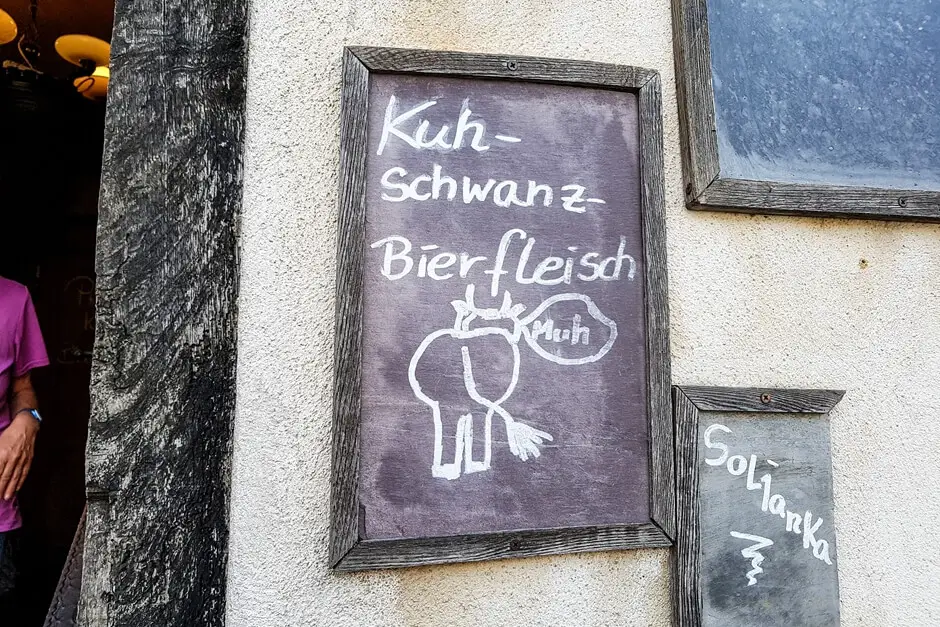 Kuh-
schwanz-
Bierfleisch
Muh
Soljanka